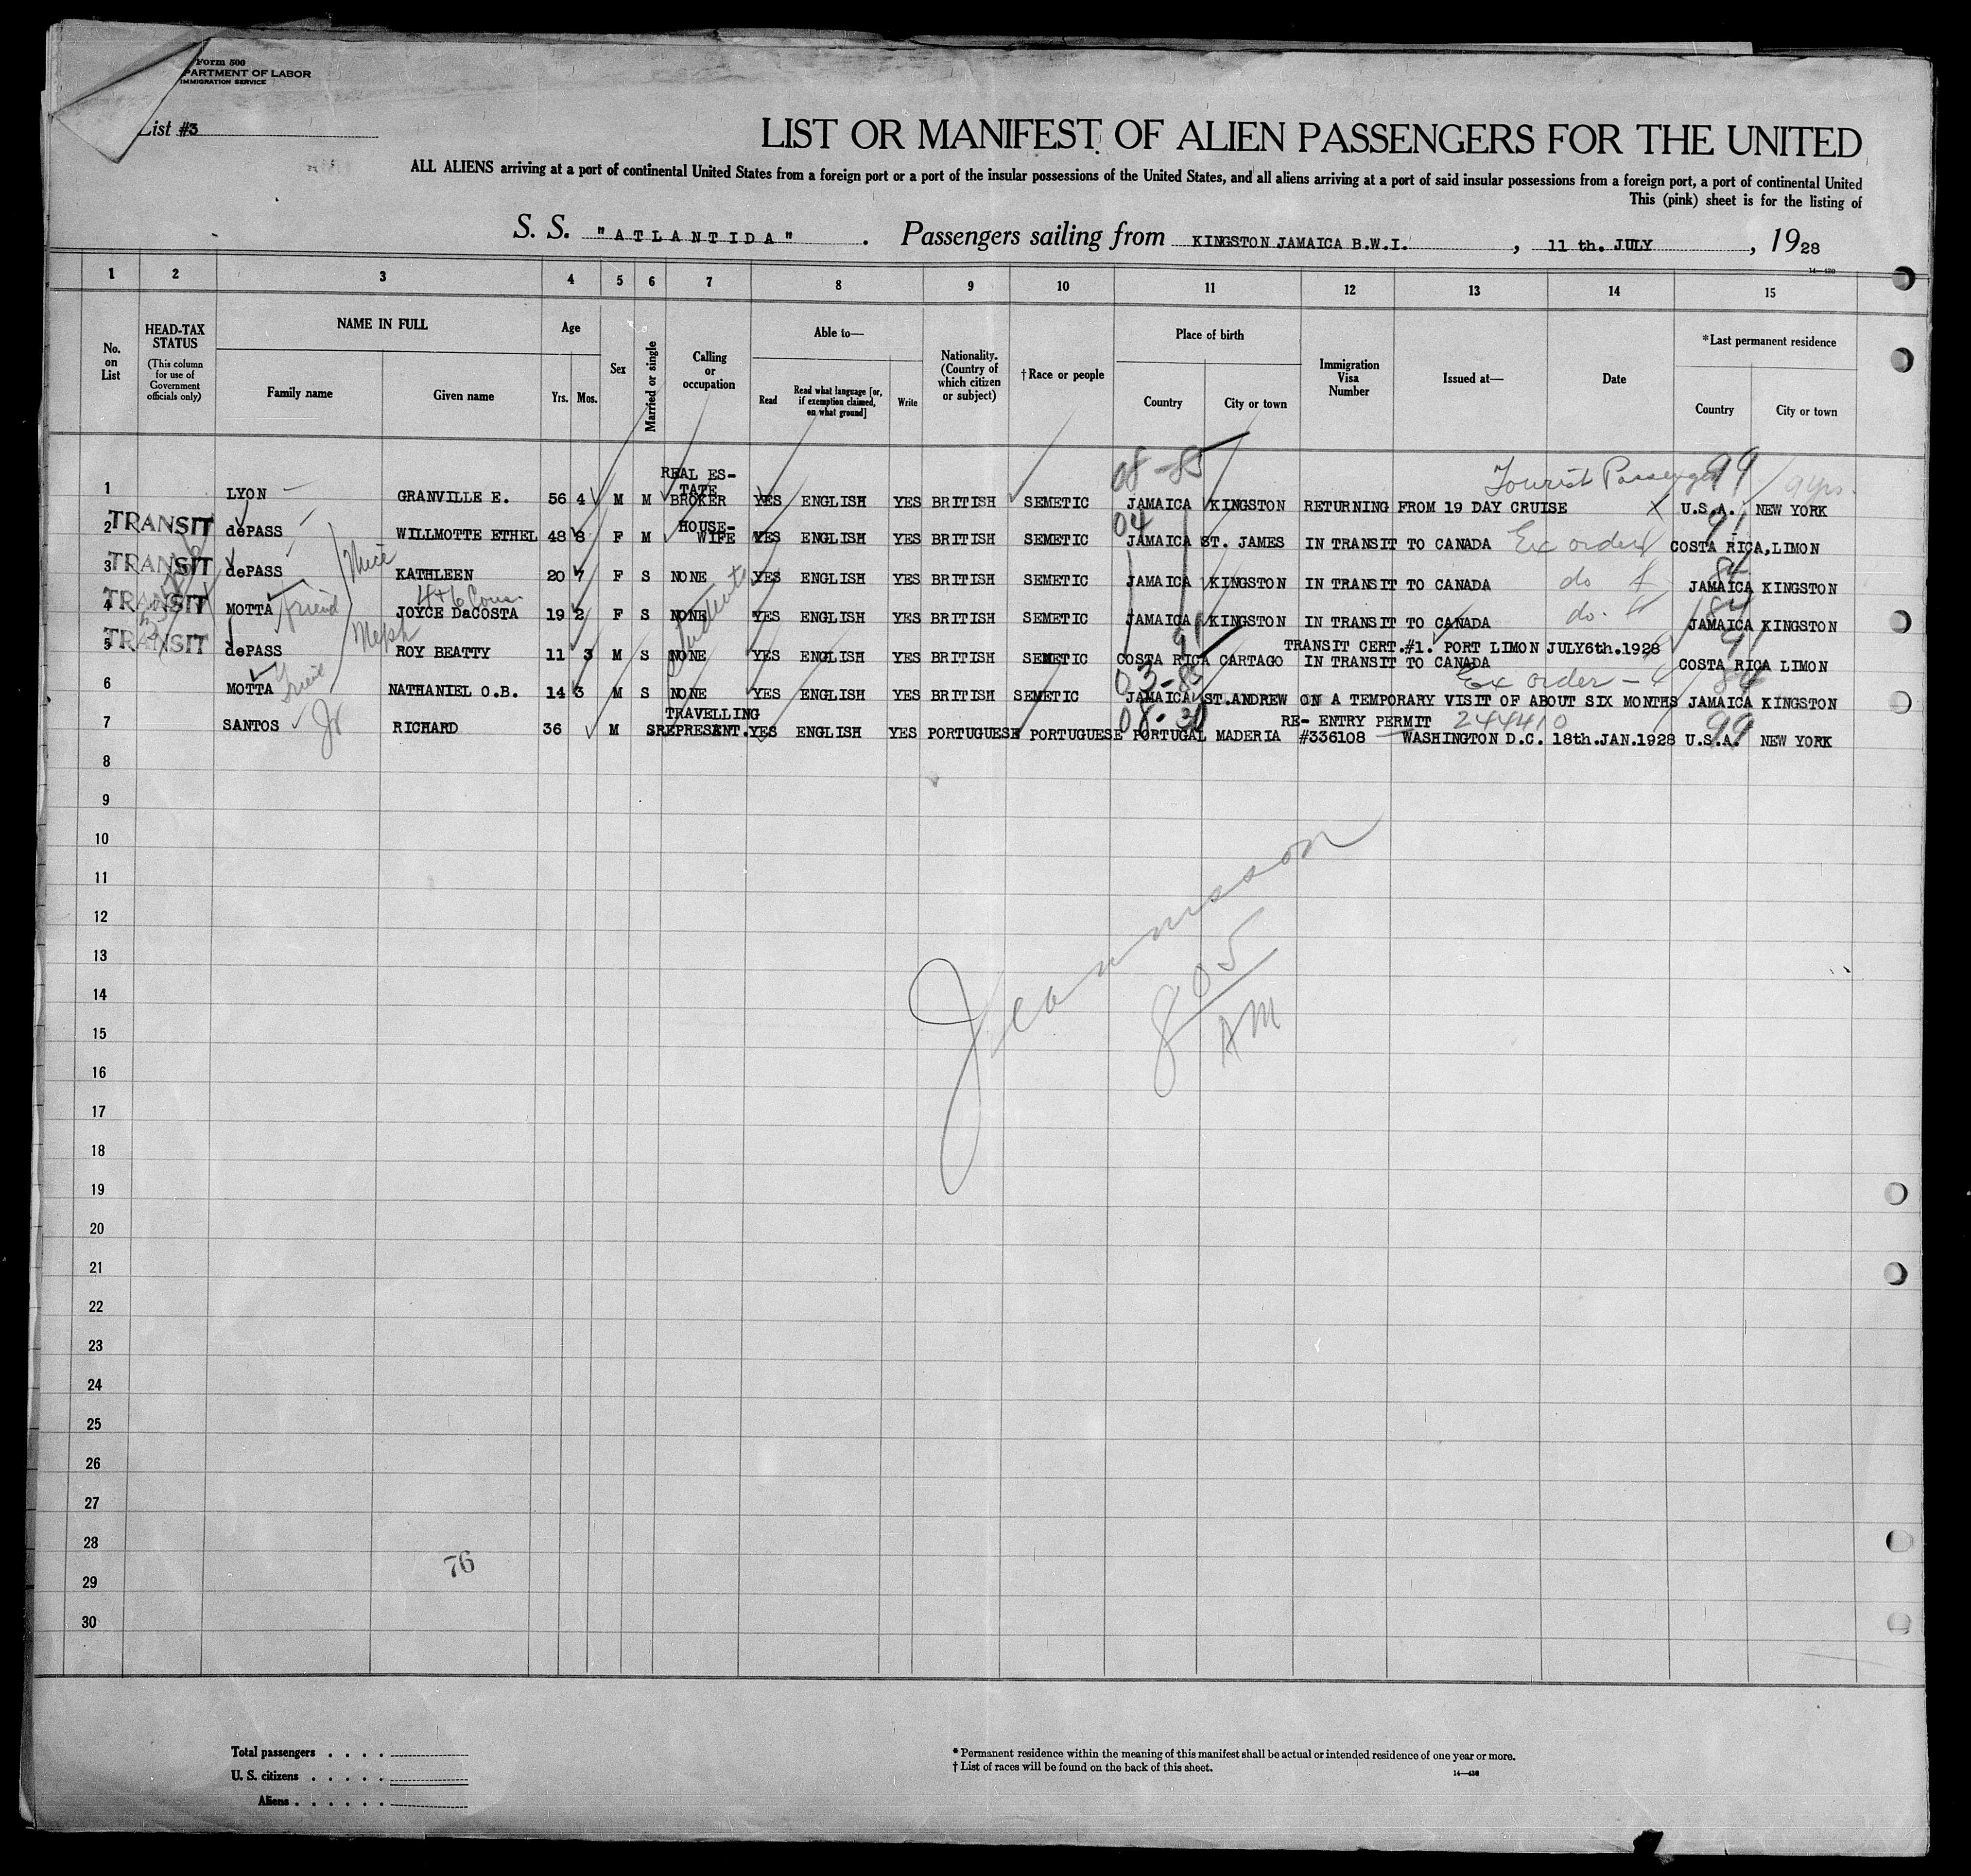 Form 500
PARTMENT OF LABOR
IMMIGRATION SERVICE
List #3
LIST OR MANIFEST OF ALIEN PASSENGERS FOR THE UNITED
ALL ALIENS arriving at a port of continental United States from a foreign port or a port of the insular possessions of the United States, and all aliens arriving at a port of said insular possessions from a foreign port, a port of continental United
This (pink) sheet is for the listing of
S. S. "ATLANTIDA". Passengers sailing from KINGSTON JAMAICA B.W.I., 11 th. JULY, 1928
14—430
1 2 3 4 5 6 7 8 9 10 11 12 13 14 15
No. on List
HEAD-TAX STATUS (This column for use of Government officials only)
NAME IN FULL
Family name Given name
Age
Yrs. Mos.
Sex
Married or single
Calling or occupation
Able to—
Read Read what language [or, if exemption claimed, on what ground] Write
Nationality. (Country of which citizen or subject)
†Race or people
Place of birth
Country City or town
Immigration Visa Number
Issued at—
Date
*Last permanent residence
Country City or town
08-85 Tourist Passenger 99 9 yrs.
1 LYON GRANVILLE E. 56 4 M M REAL ESTATE BROKER YES ENGLISH YES BRITISH SEMETIC JAMAICA KINGSTON RETURNING FROM 19 DAY CRUISE U.S.A. NEW YORK
TRANSIT 2 dePASS WILLMOTTE ETHEL 48 8 F M HOUSE-WIFE YES ENGLISH YES BRITISH SEMETIC 04 JAMAICA ST. JAMES IN TRANSIT TO CANADA Ex order 91 COSTA RICA, LIMON
TRANSIT 3 dePASS Niece KATHLEEN 20 7 F S NONE YES ENGLISH YES BRITISH SEMETIC JAMAICA KINGSTON IN TRANSIT TO CANADA do 84 JAMAICA KINGSTON
TRANSIT 4 MOTTA friend JOYCE DaCOSTA 19 2 F S NONE Students YES ENGLISH YES BRITISH SEMETIC JAMAICA KINGSTON IN TRANSIT TO CANADA do. 84 JAMAICA KINGSTON
TRANSIT 5 dePASS Neph ROY BEATTY 11 3 M S NONE YES ENGLISH YES BRITISH SEMETIC 91 COSTA RICA CARTAGO TRANSIT CERT.#1. PORT LIMON JULY6th.1928 IN TRANSIT TO CANADA 91 COSTA RICA LIMON
6 MOTTA friend NATHANIEL O.B. 14 3 M S NONE YES ENGLISH YES BRITISH SEMETIC 03-85 JAMAICA ST.ANDREW Ex order ON A TEMPORARY VISIT OF ABOUT SIX MONTHS 84 JAMAICA KINGSTON
7 SANTOS Jr RICHARD 36 M S TRAVELLING REPRESENT. YES ENGLISH YES PORTUGUESE PORTUGUESE 08-30 PORTUGAL MADERIA RE- ENTRY PERMIT 244410 #336108 WASHINGTON D.C. 18th.JAN.1928 99 U.S.A. NEW YORK
8
9
10
11
12
13
14
15
16
17
18
19
20
21
22
23
24
25
26
27
28
29
30
8 05 AM
76
Total passengers . . . .
U. S. citizens . . . . .
Aliens . . . . . .
* Permanent residence within the meaning of this manifest shall be actual or intended residence of one year or more.
† List of races will be found on the back of this sheet.
14—430